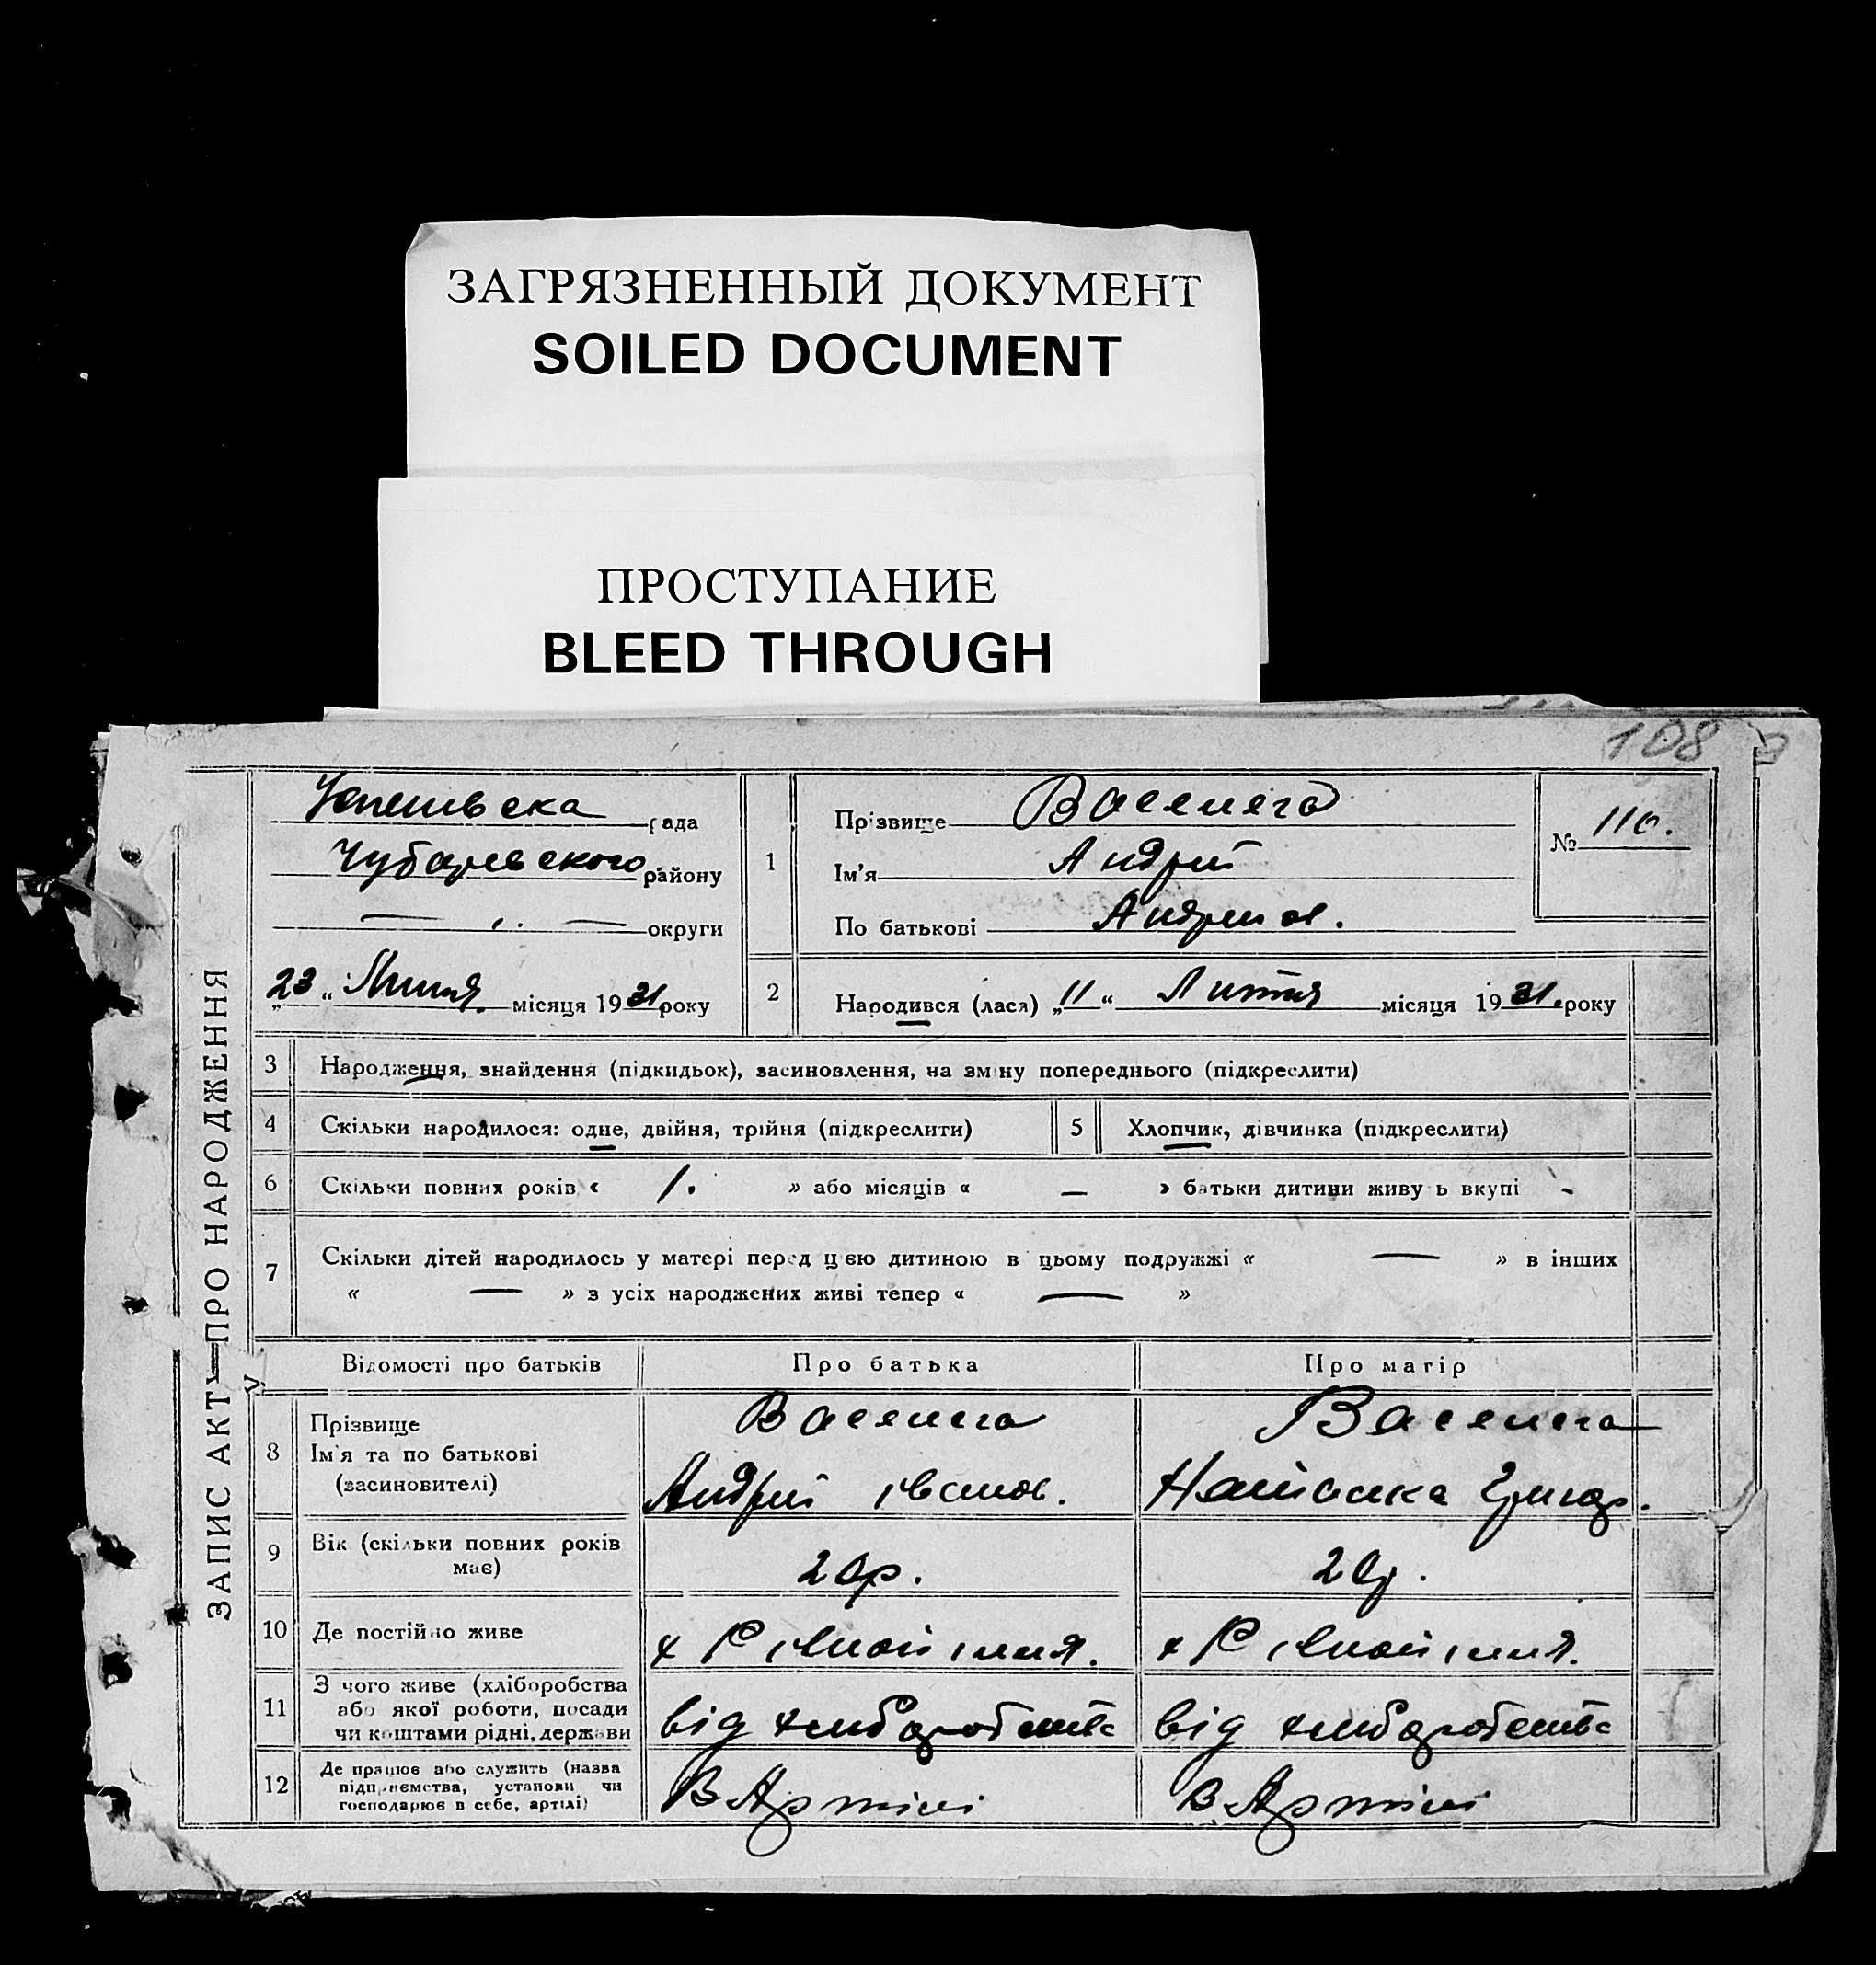 ЗАГРЯЗНЕННЫЙ ДОКУМЕНТ
SOILED DOCUMENT
ПРОСТУПАНИЕ
BLEED THROUGH
108
ЗАПИС АКТУ—ПРО НАРОДЖЕННЯ
рада
Чубарівського району
— — округи
„23“ Липня місяця 1931 року
1
Прізвище Васенега
Ім'я Андрій
По батькові Андрійов.
№ 110.
2
Народився (лася) „11“ місяця 1931. року
3 Народження, знайдення (підкидьок), засиновлення, на зміну попереднього (підкреслити)
4 Скільки народилося: одне, двійня, трійня (підкреслити) 5 Хлопчик, дівчинка (підкреслити)
6 Скільки повних років « 1. » або місяців « — » батьки дитини живуть вкупі -
7 Скільки дітей народилось у матері перед цією дитиною в цьому подружжі « — » в інших
« — » з усіх народжених живі тепер « — »
Відомості про батьків Про батька Про матір
8 Прізвище Васенега Васенега
Ім'я та по батькові
(засиновителі) Андрій Іванов. Григор.
9 Вік (скільки повних років
має) 20р. 20р.
10 Де постійно живе х х
11 З чого живе (хліборобства
або якої роботи, посади
чи коштами рідні, держави від хліборобства від хліборобства
12 Де працює або служить (назва
підприємства, установи чи
господарює в себе, артілі) В Артілі В Артілі